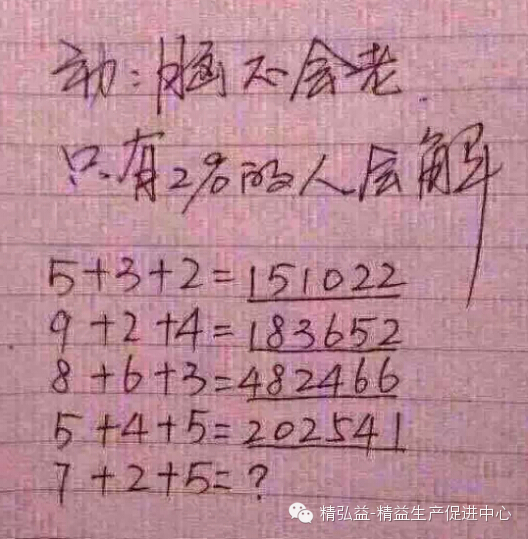 动:脑不会老
只有2%的人会解
5+3+2=151022
9+2+4=183652
8+6+3=482466
5+4+5=202541
7+2+5=?
精弘益-精益生产促进中心